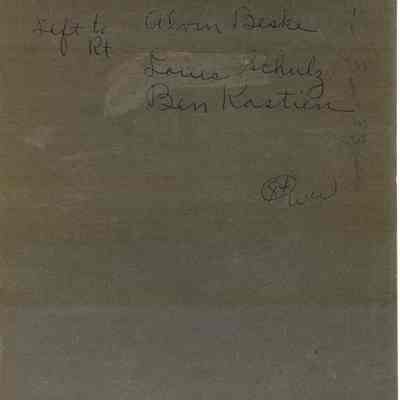 Left to Alvin Beske
Rt
Louis Schulz
Ben Kastien